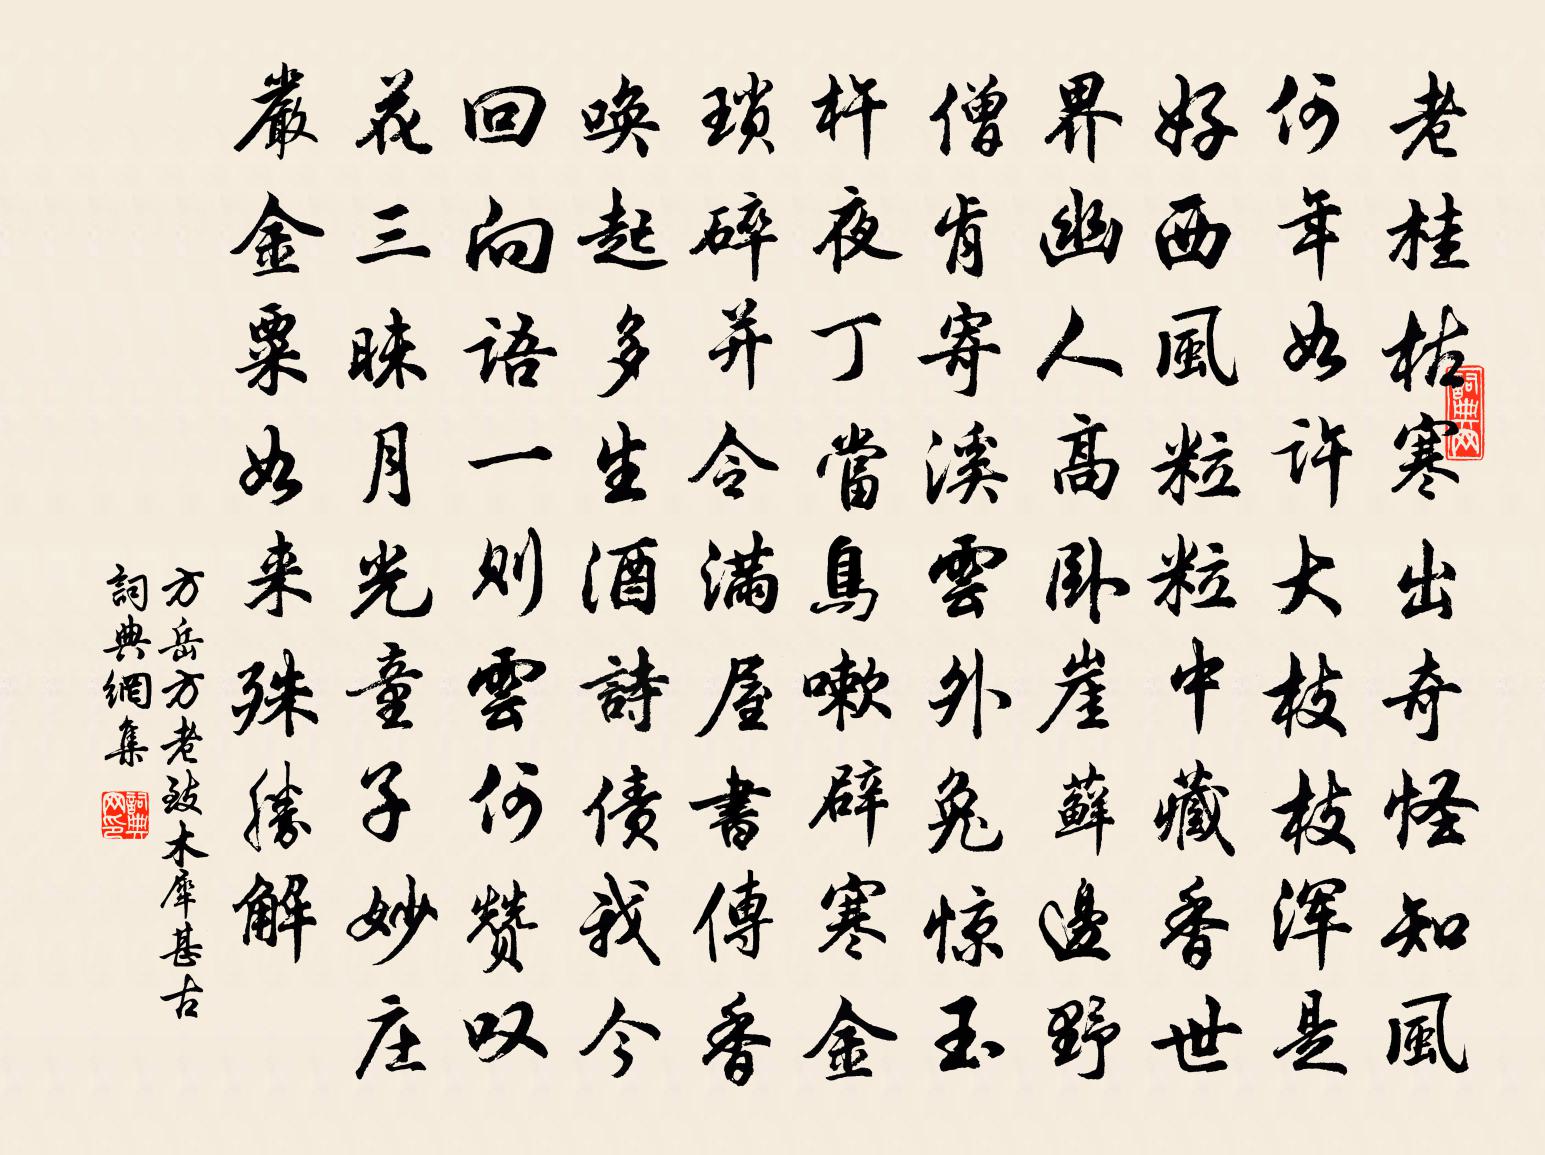 老桂枯寒出奇怪知風
何年如許大枝枝浑是
好西風粒粒中藏香世
界幽人高卧崖蘚邊野
僧肯寄溪雲外兔惊玉
杵夜丁當鳥嗽辟寒金
瑣碎并令滿屋書傳香
唤起多生酒詩债我今
回向語一则雲何赞叹
花三昧月光童子妙庄
嚴金粟如来殊勝解
方岳方老致木犀甚古
詞典網集
詞典网
詞典网印